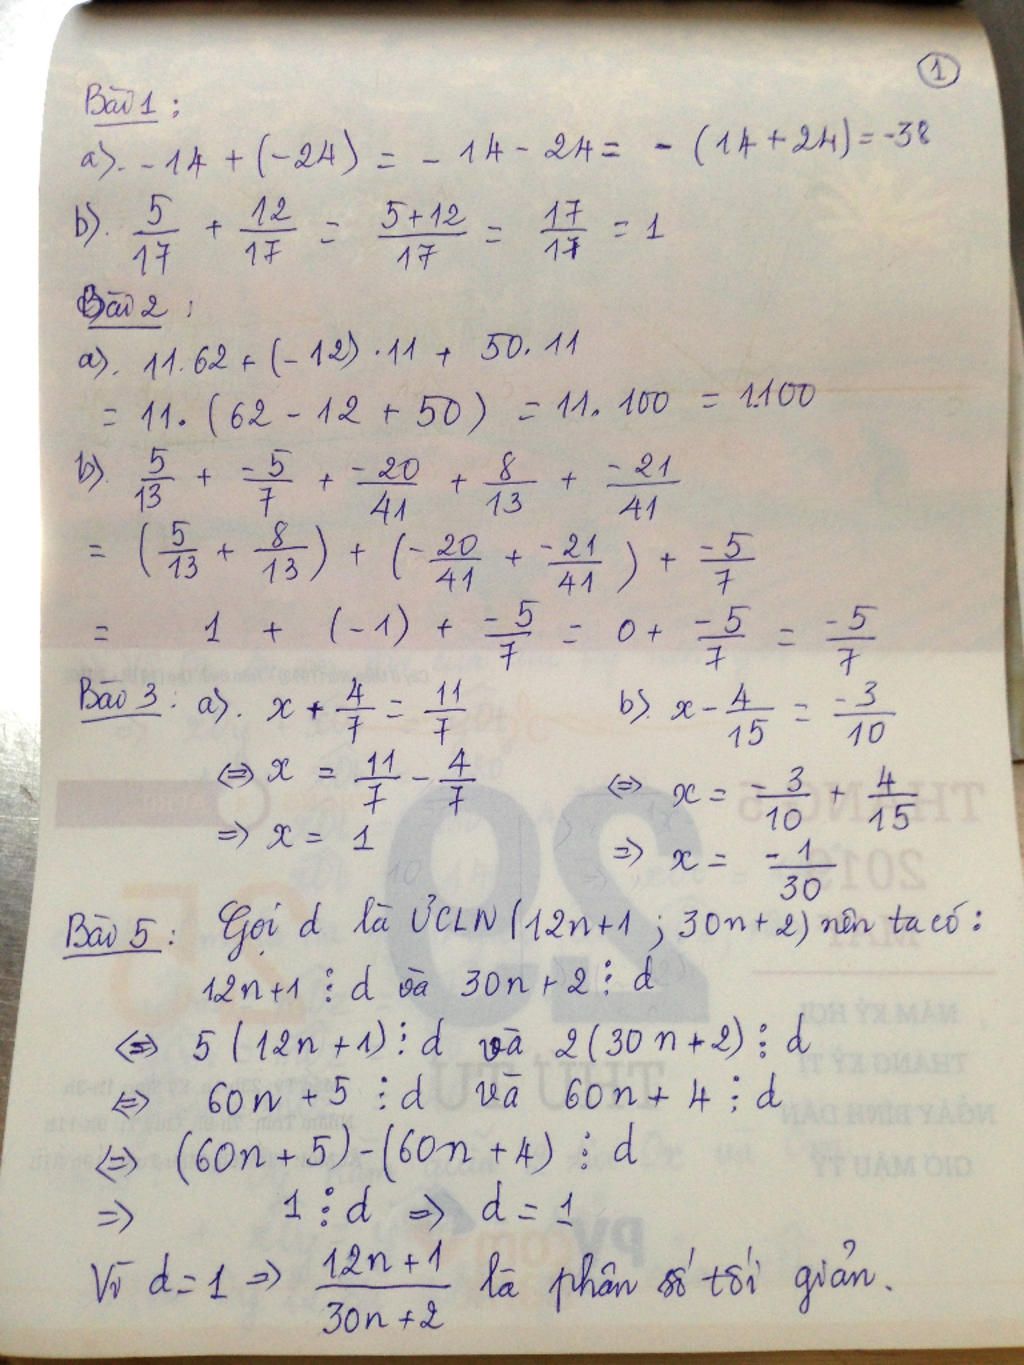 1
Bài 1 :
a). -14 + (-24) = - 14 - 24 = - (14 + 24) = -38
b). 5/17 + 12/17 = 5+12/17 = 17/17 = 1
Bài 2 :
a). 11.62 + (-12).11 + 50.11
= 11. (62 - 12 + 50) = 11. 100 = 1.100
b). 5/13 + -5/7 + -20/41 + 8/13 + -21/41
= (5/13 + 8/13) + (-20/41 + -21/41) + -5/7
= 1 + (-1) + -5/7 = 0 + -5/7 = -5/7
Bài 3 : a). x + 4/7 = 11/7 b). x - 4/15 = -3/10
⇔ x = 11/7 - 4/7 ⇔ x = -3/10 + 4/15
⇒ x = 1 ⇒ x = -1/30
Bài 5 : Gọi d là ƯCLN (12n+1 ; 30n+2) nên ta có :
12n+1 ⋮ d và 30n+2 ⋮ d
⇔ 5(12n+1) ⋮ d và 2(30n+2) ⋮ d
⇔ 60n + 5 ⋮ d và 60n + 4 ⋮ d
⇔ (60n + 5) - (60n + 4) ⋮ d
⇒ 1 ⋮ d ⇒ d = 1
Vì d = 1 ⇒ 12n+1/30n+2 là phân số tối giản.